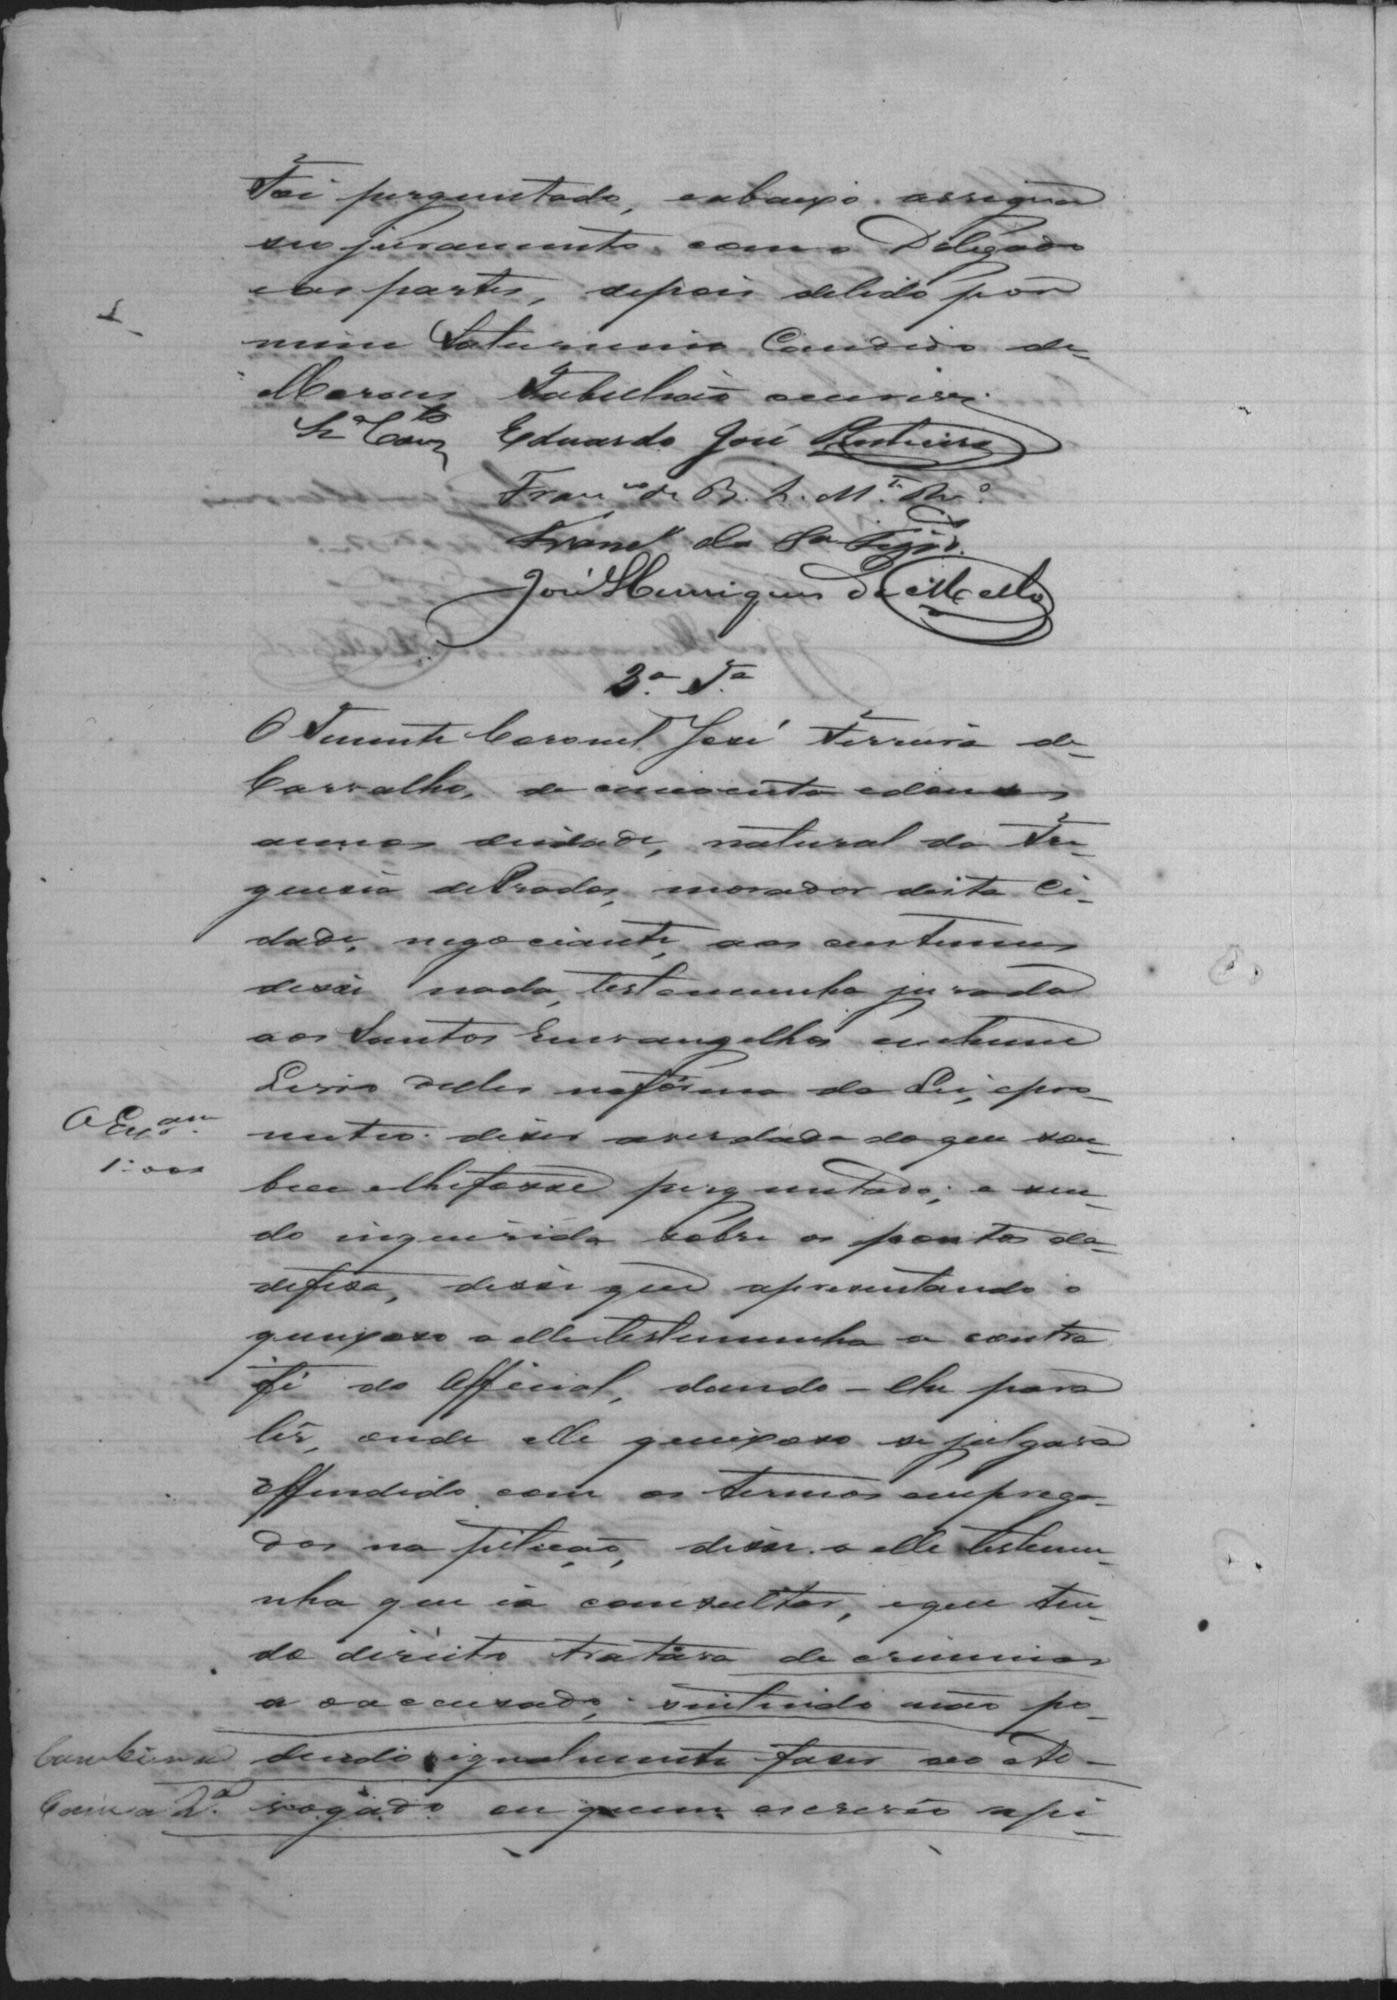 Foi perguntado, eabaixo assigna
seo juramento com o Delegado
eas partes, depois delido por
mim Saturnino Candido de
Moraes Tabelliaõ oescrevi.
Eduardo José
Franc.co de B. L. M.
José Henriques de Mello
3.a T.a
O Tenente Coronel José Ferreira de
Carvalho, de cincoenta edous
annos deidade, natural da Fre-
guesia dePrados, morador desta Ci-
dade, negociante, aos custumes
disse nada, testemunha jurada
aos Santos Euvangelhos emhum
Livro delles naforma da Lei, epro-
meteo diser averdade do que sou-
besse elhefosse perguntado; e sen-
do inquirida sobre os pontos da
defesa, disse que apresentando o
queixoso a elletestemunha a contra
fé do Official, dando-lhe para
lêr, onde elle queixoso se julgava
offendido com os termos emprega-
dos na petiçaõ, disse a elle testemu-
nha que ia consultar, eque ten-
do direito tratára de criminar
a oaccusado, sentindo naõ po-
Combina dendo igualmente faser ao Ad-
Com a 2.a vogado ou quem escreveo apé-